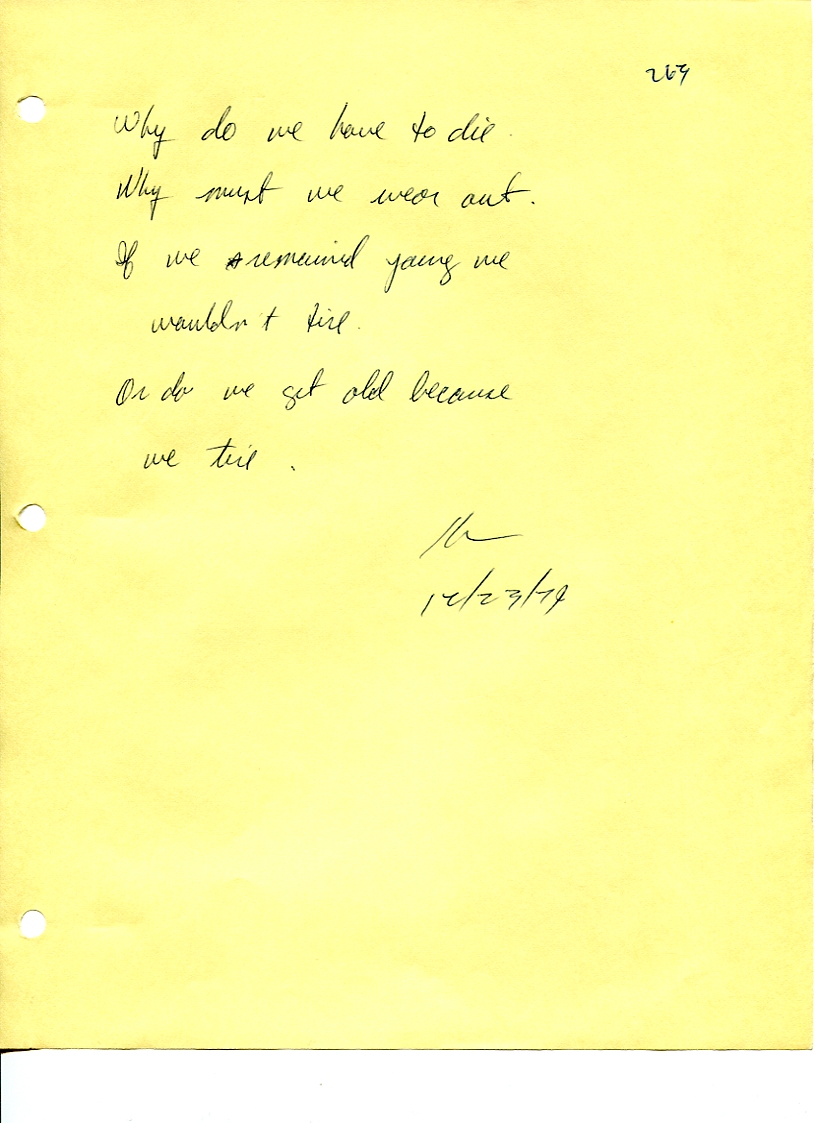 269
Why do we have to die.
Why must we wear out.
If we remained young we
wouldn't tire.
Or do we get old because
we tire.
12/23/79